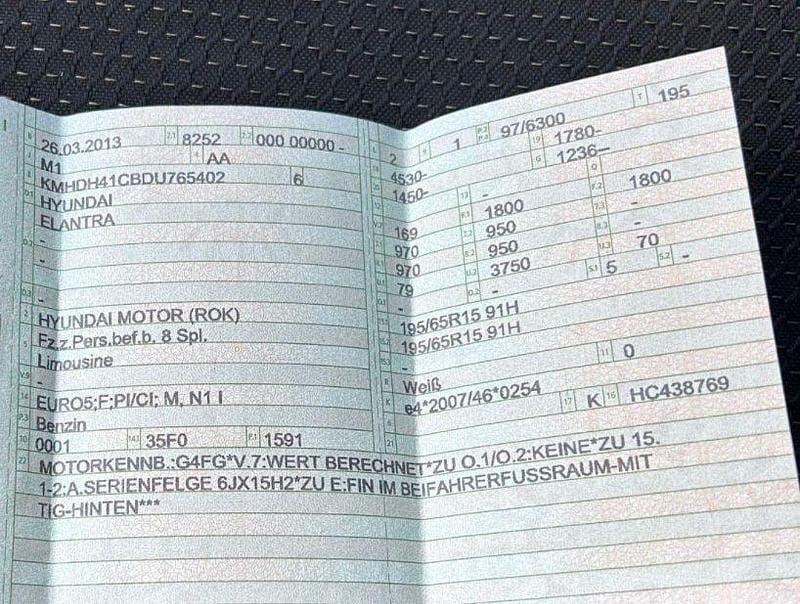 26.03.2013 2.1 8252 2.2 000 00000 -
M1 AA
KMHDH41CBDU765402 6
HYUNDAI
ELANTRA
-
-
-
-
HYUNDAI MOTOR (ROK)
Fz.z.Pers.bef.b. 8 Spl.
Limousine
-
EURO5;F;PI/CI; M, N1 I
Benzin
0001 35F0 P.1 1591
2 1 97/6300 T 195
4530- 1780-
1450- G 1236--
- 
169 1800 1800
970 950 -
970 950 -
79 3750 70
- - S.1 5 S.2 -
195/65R15 91H
195/65R15 91H
-
R Weiß 11 0
K e4*2007/46*0254 17 K 16 HC438769
21
22 MOTORKENNB.:G4FG*V.7:WERT BERECHNET*ZU O.1/O.2:KEINE*ZU 15.
1-2:A.SERIENFELGE 6JX15H2*ZU E:FIN IM BEIFAHRERFUSSRAUM-MIT
TIG-HINTEN***